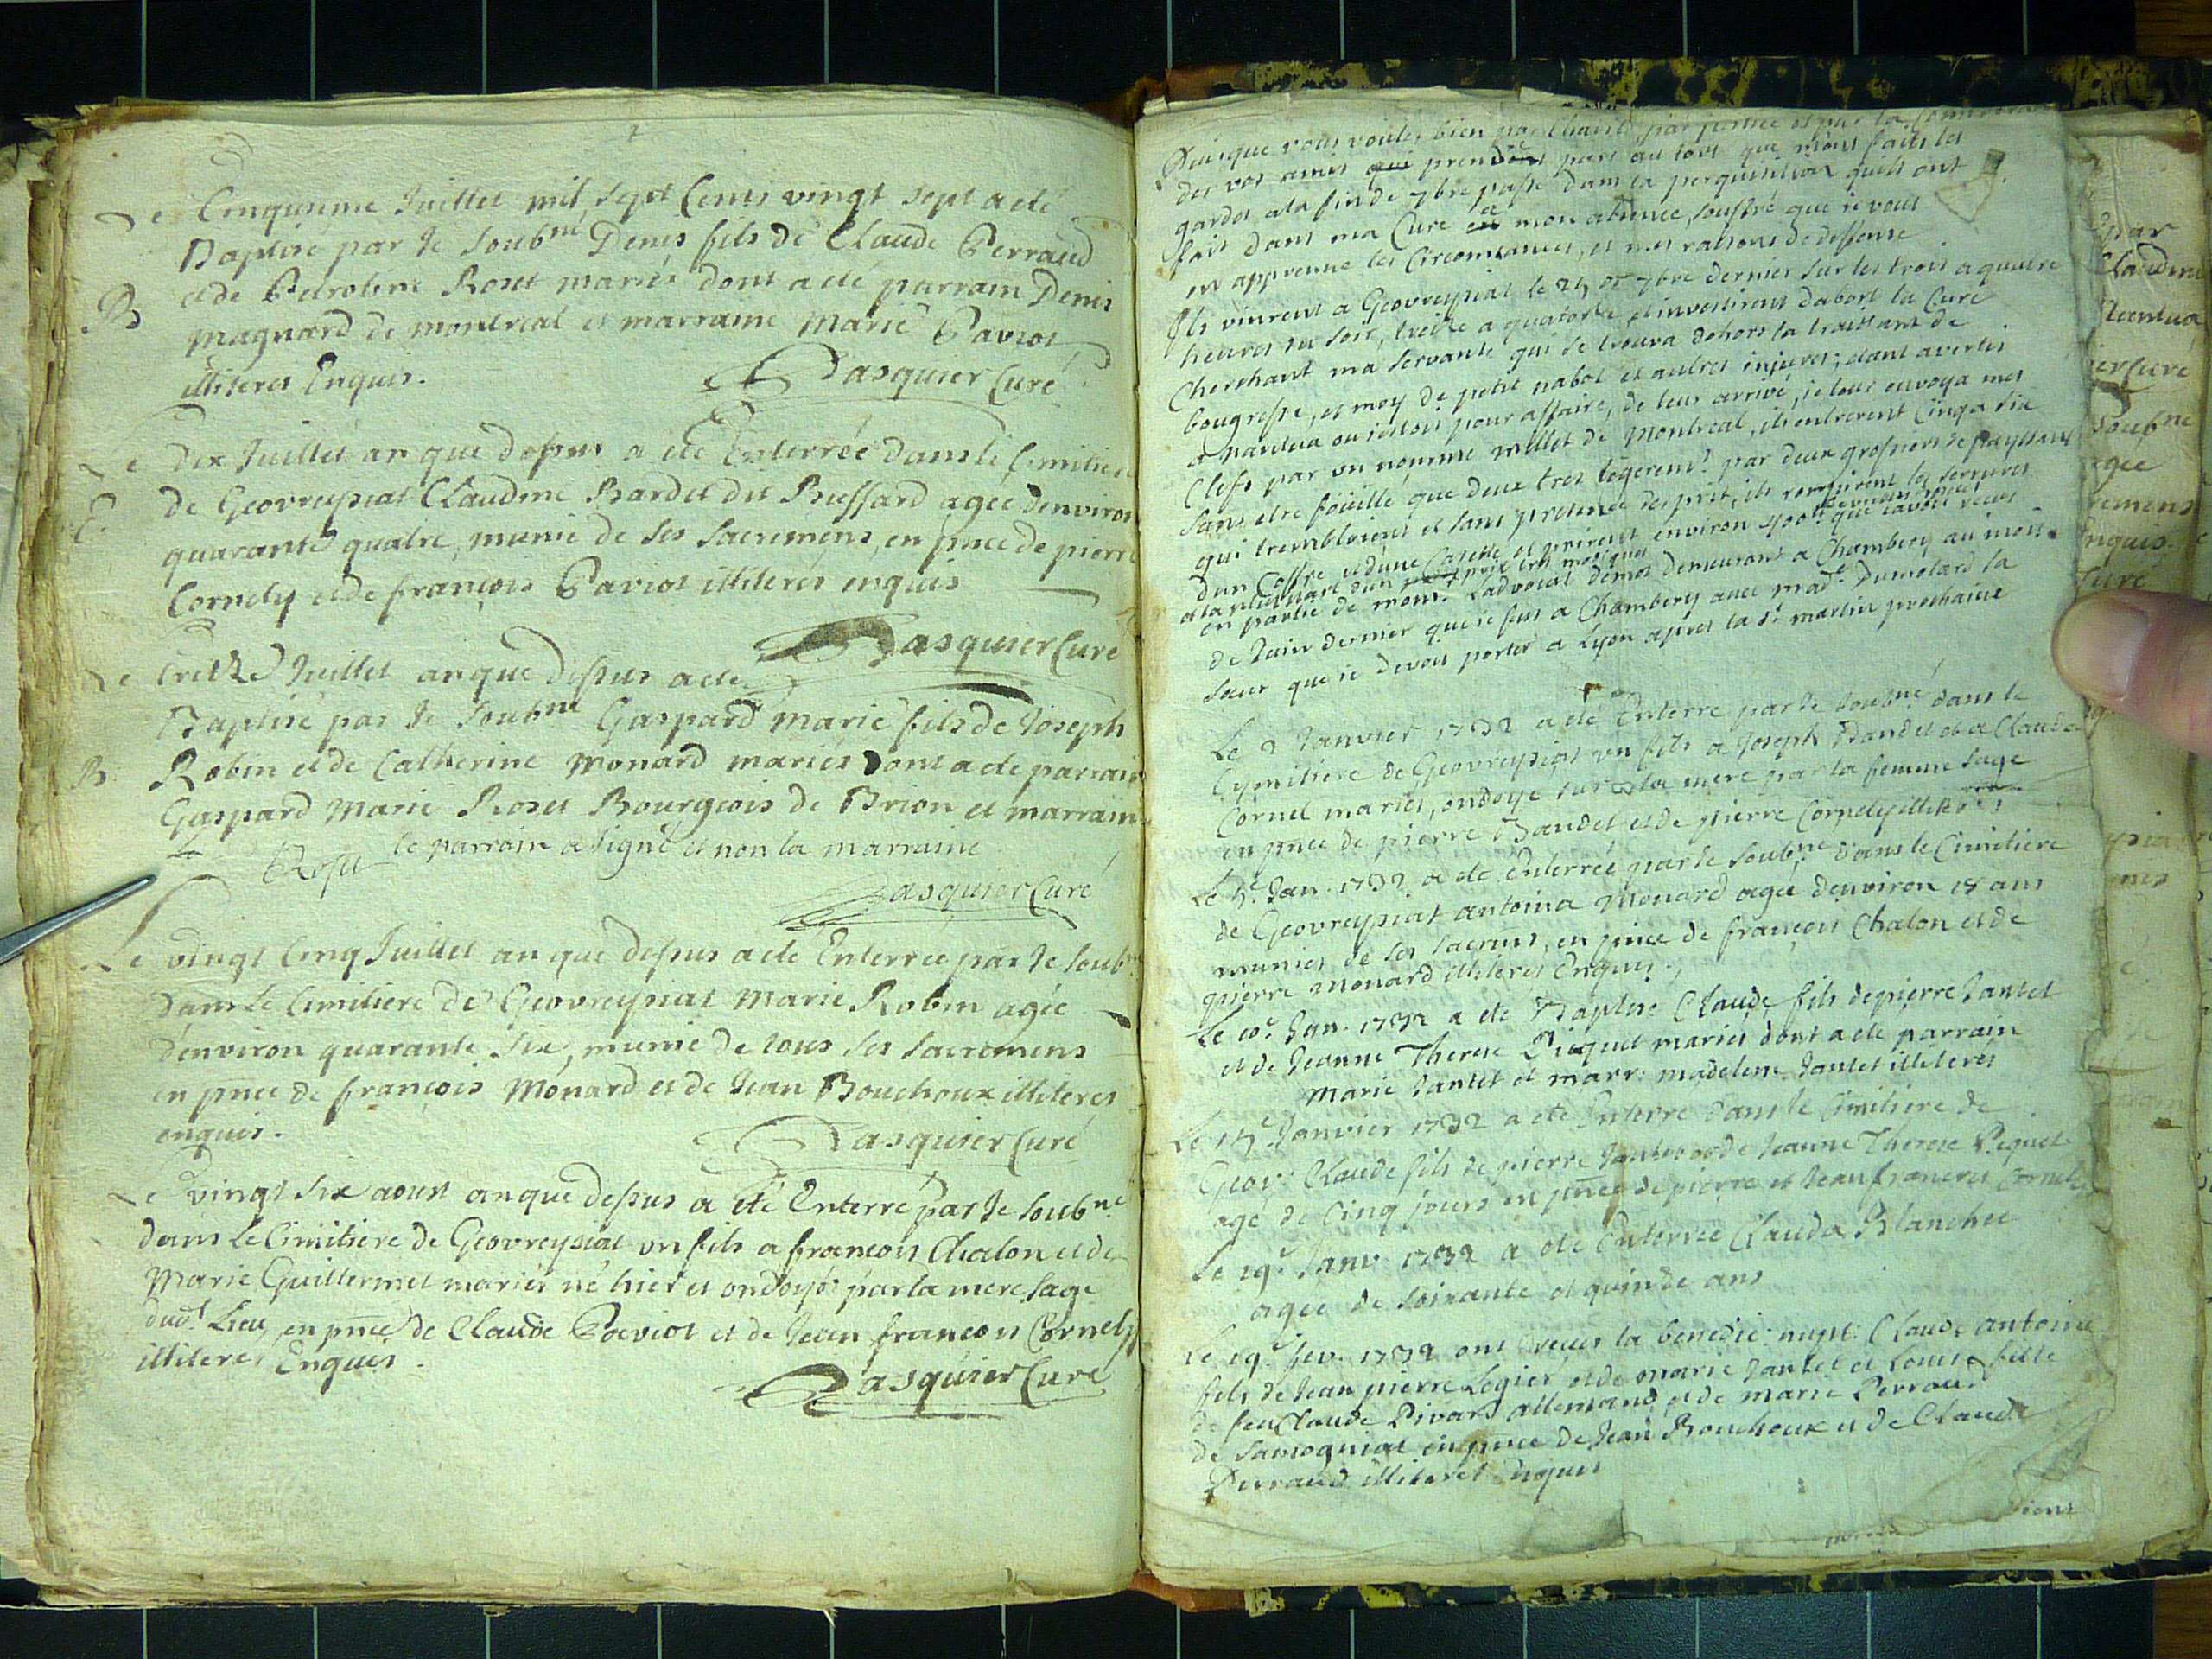 Le Cinquieme Juillet mil sept Cents vingt sept a eté
Baptisé par Je soubné Denis fils de Claude Perraud
B et de Petroline Roset mariés dont a eté parrain Denis
Magnard de montreal et marraine Marie Paviot
illiteres Enquis. Pasquier Curé
Le dix Juillet an que dessus a eté Enterrée dans le Cimitiere
de Geovreysiat Claudine Bardet dit Buffard agée denviron
E. quarante quatre, munie de ses sacremens, en pnce de pierre
Cornely et de françois Paviot illiterés enquis
Pasquier Curé
Le treize Juillet an que dessus a eté
Baptisé par Je soubné Gaspard Marie fils de Joseph
B Robin et de Catherine Monard mariés dont a eté parrain
Gaspard Marie Roset Bourgeois de Brion et marraine
le parrain a signé et non la marraine
Roset
Pasquier Curé
Le vingt Cinq Juillet an que dessus a eté Enterrée par Je soubné
dans Le Cimitiere de Geovreysiat Marie Robin agée
denviron quarante six, munie de tous ses sacremens
en pnce de françois Monard et de Jean Bouchoux illiteres
enquis. Pasquier Curé
Le vingt six aoust an que dessus a été Enterré par Je soubné
dans Le Cimitiere de Geovreysiat un fils a françois Chalon et de
Marie Guillermet mariés né hier et ondoyé par la mere sage
dud. Lieu, en pnce de Claude Paviot et de Jean françois Cornely
illiteres Enquis.
Pasquier Curé
Puisque vous voulés bien par Charité, par justice et par la
des vos amis qui prendre part au tort que mont faits les
gardes a la fin de 7bre passé dans la perquisition quils ont
fait dans ma Cure en mon absence, souffré que je vous
en apprenne les Circonstances, et mes raisons de deffense
Ils vinrent a Geovreysiat le 25 de 7bre dernier sur les trois a quatre
heures du soir, treize a quatorze, et investirent dabort la Cure
Cherchant ma servante qui se trouva dehors la traittant de
bougresse, et moy de petit nabot et autres injures; étant avertis
a nantua ou jetois pour affaire, de leur arrivé, je leur envoya mes
Clefs par un nommé millet de Montreal, ils entrerent Cinq a six
sans etre fouillé que deux tres legerement par deux
qui trembloient et sans presence desprit, ils rompirent les serrures
dun Coffre et dune Casette et prirent environ 400 que javois receu
en partie de monsr Ladvocat demos demeurant a Chambery au mois
de Juin dernier que je fus a Chambery avec made Dumolard la
sœur que je devois porter a Lyon apres la St martin prochaine
Le 2 Janvier 1732 a eté Enterré par Je soubné dans le
Cymitiere de Geovreysiat un fils a Joseph Bandet et a Claude
Cornel mariés, ondoyé sur la mere par la femme sage
en pnce de pierre Bandet et de pierre Cornely illiterés
Le 5e Jan. 1732 a eté Enterrée par Je soubné dans le Cimitiere
de Geovreysiat antoina Monard agée denviron 18 ans
munies de ses sacrems, en pnce de françois Chalon et de
pierre monard illiteres Enquis.
Le 10e Jan. 1732 a eté Baptisé Claude fils de pierre Jantet
et de Jeanne Therese Piquet mariés dont a eté parrain
Marie Jantet et marr: madelene Jantet illiterés
Le 15e Janvier 1732 a eté Enterré dans le Cimitiere de
Geov: Claude fils de pierre Jantet et de Jeanne Therese Pequet
agé de Cinq jours en pnce de pierre et Jean françois Cornely
Le 19e Janv. 1732 a eté Enterrée Clauda Blanchet
agée de soixante et quinze ans
Le 19e fev. 1732 ont receus la benedic: nupt: Claude antoine
fils de Jean pierre Legier et de marie Jantet et Louise fille
de feu Claude Pivard allemand et de marie Perraud
de Samognat en pnce de Jean Bouchoux et de Claude
Perraud illiteres Enquis